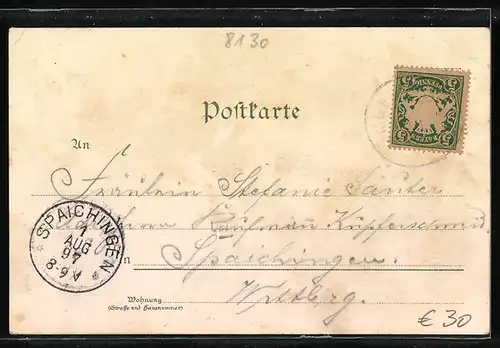 8130
Postkarte
5 PFENNIG 5
BAYERN
An
Fräulein Stefanie Sauter
Kaufman Kupferschmid
in Spaichingen.
Wttbrg.
SPAICHINGEN
1
AUG
97
8-9V
Wohnung
(Straße und Hausnummer)
€ 30